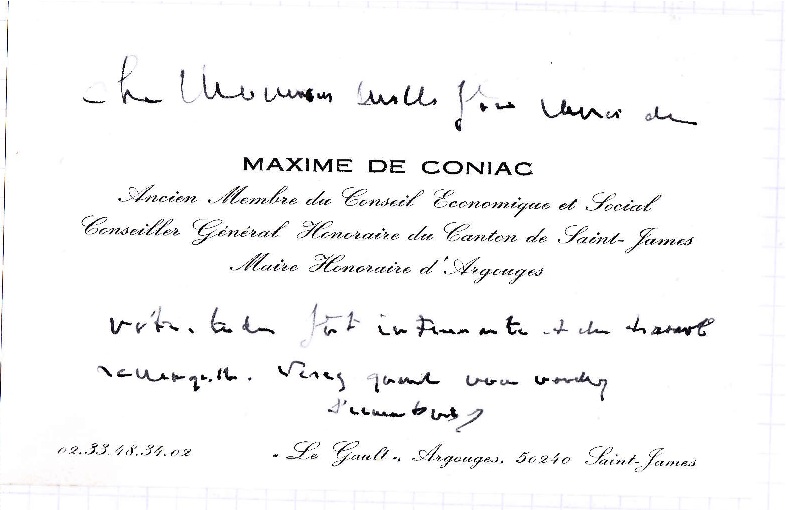 Cher Monsieur mille fois merci de
MAXIME DE CONIAC
Ancien Membre du Conseil Economique et Social
Conseiller Général Honoraire du Canton de Saint-James
Maire Honoraire d'Argouges
votre fort intéressante et du travail
remarquable. Venez quand vous voudrez
02.33.48.34.02 « Le Gault », Argouges, 50240 Saint-James